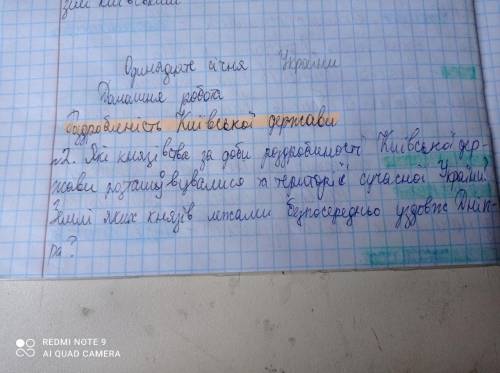 зми київський
Одинадцяте січня України
Домашня робота
Роздробленість Київської держави
№2. Які князівства за доби роздробленості Київської дер-
жави розташовувалися на території сучасної України?
Землі яких князів лежали безпосередньо уздовж Дніп-
ра?
REDMI NOTE 9
AI QUAD CAMERA